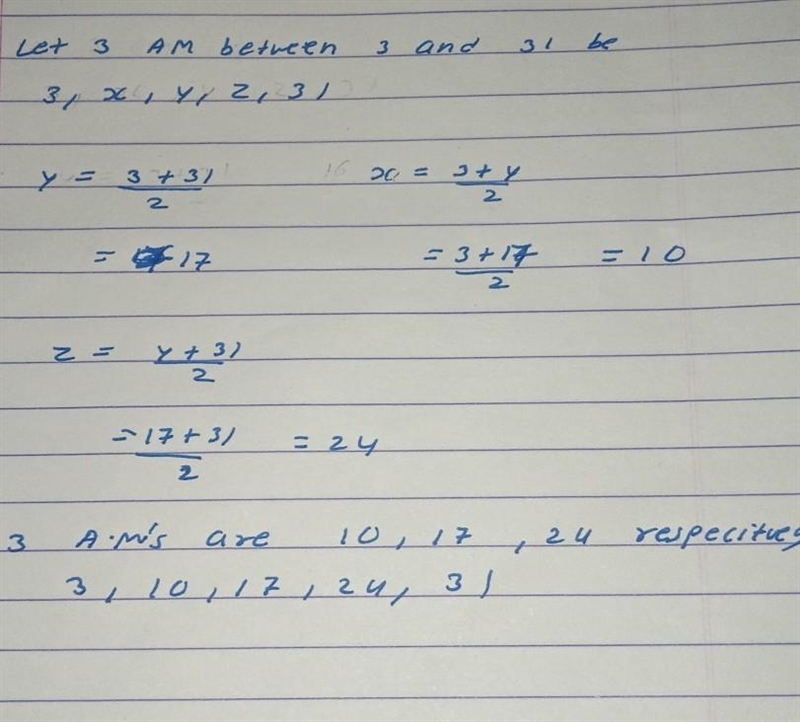 Let 3 AM between 3 and 31 be
3, x, y, z, 31
y = 3 + 31 / 2
x = 3 + y / 2
= 17
= 3 + 17 / 2 = 10
z = y + 31 / 2
= 17 + 31 / 2 = 24
3 A.M's are 10, 17, 24 respecitvey
3, 10, 17, 24, 31